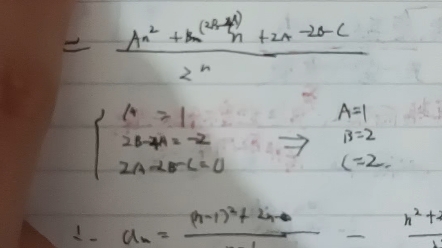 = (An² + (2B-4A)n + 2A - 2B - C) / 2ⁿ
A = 1
2B-4A = -2 ⇒
2A-2B-C=0
A=1
B=2
C=2.
∴ aₙ = (n-1)²+2n
− n²+2